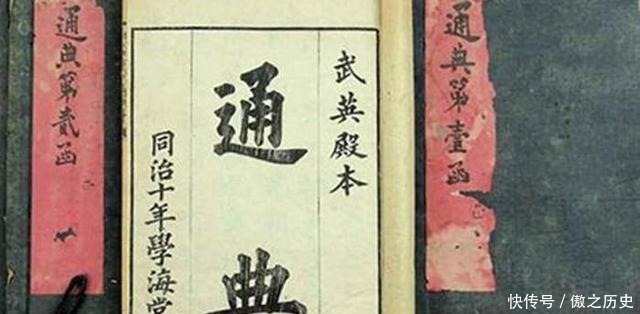 通典第壹函
武英殿本
通典
同治十年學海堂
通典第貳函
快传号/傲之历史